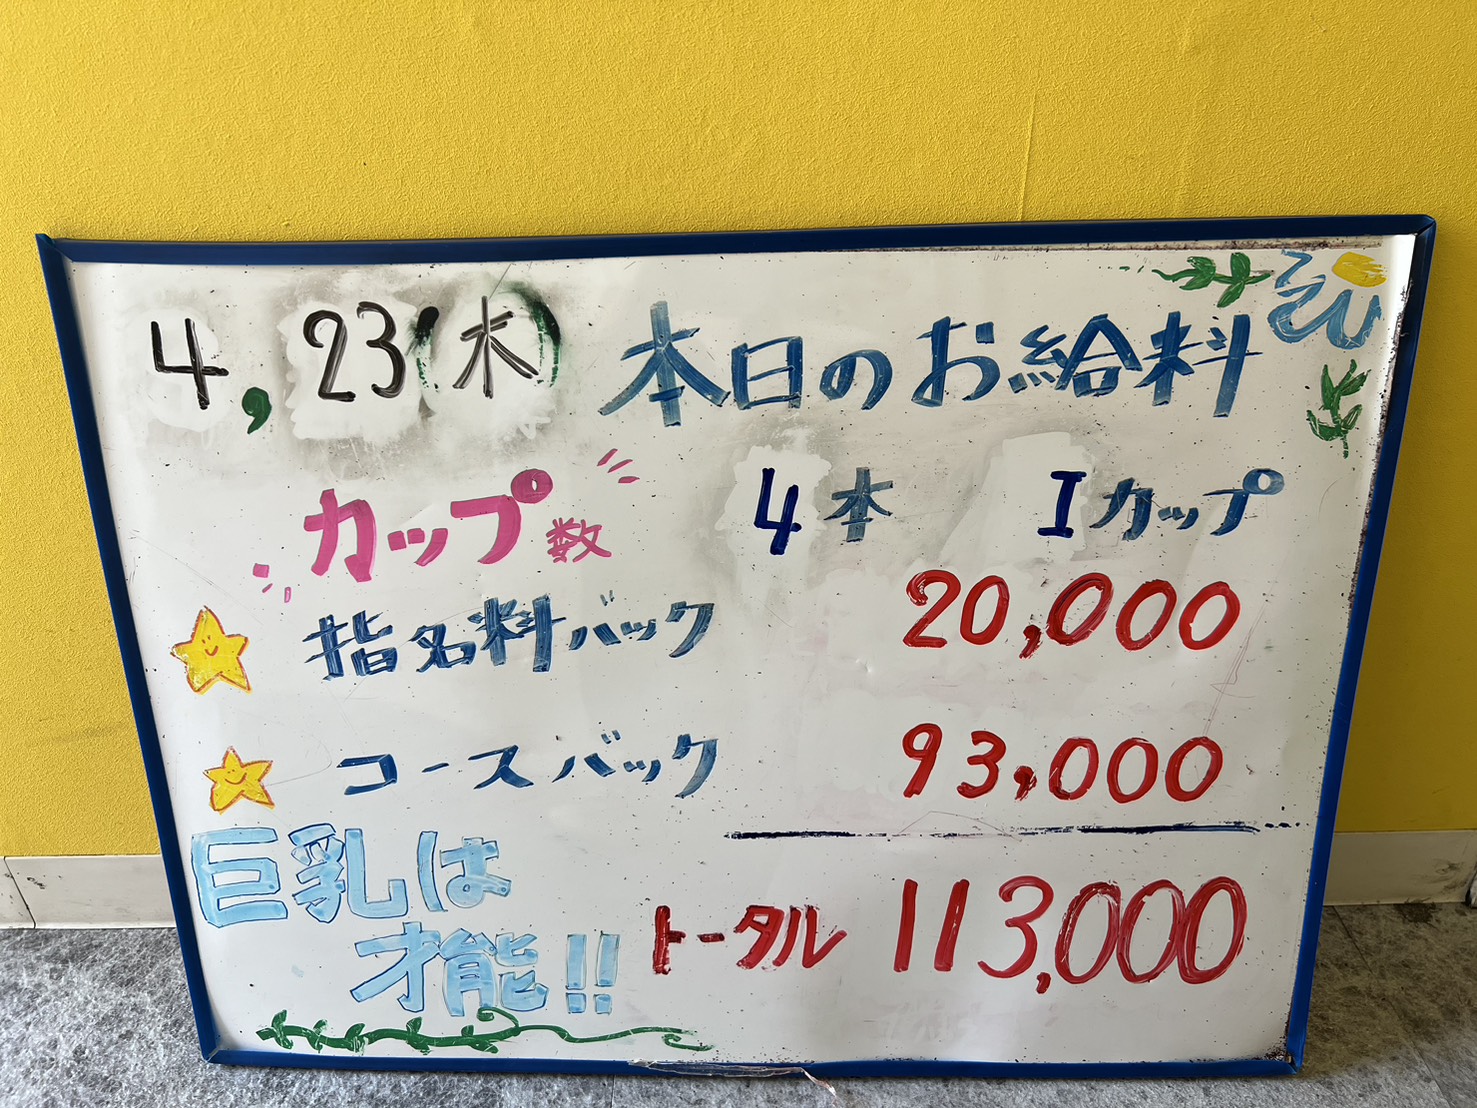 4,23(木) 本日のお給料
カップ数 4本 Iカップ
指名料バック 20,000
コースバック 93,000
巨乳は
才能!! トータル 113,000